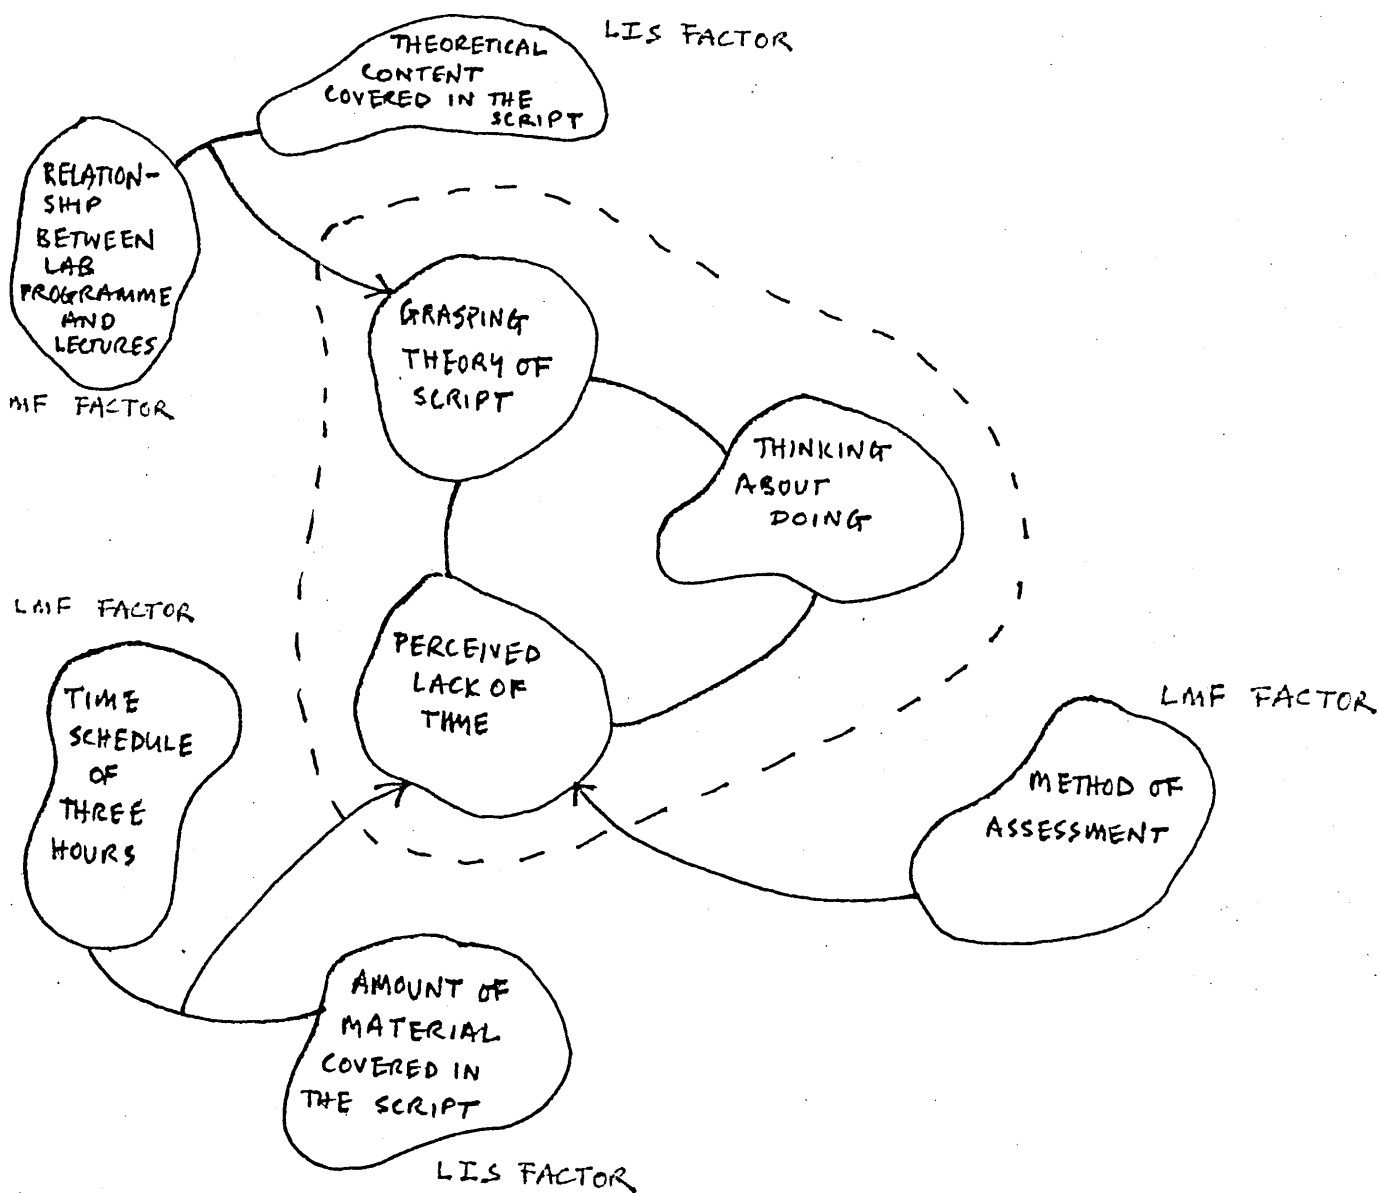 LIS FACTOR
THEORETICAL
CONTENT
COVERED IN THE
SCRIPT
RELATION-
SHIP
BETWEEN
LAB
PROGRAMME
AND
LECTURES
MF FACTOR
GRASPING
THEORY OF
SCRIPT
THINKING
ABOUT
DOING
PERCEIVED
LACK OF
TIME
LMF FACTOR
TIME
SCHEDULE
OF
THREE
HOURS
LMF FACTOR
METHOD OF
ASSESSMENT
AMOUNT OF
MATERIAL
COVERED IN
THE SCRIPT
LIS FACTOR